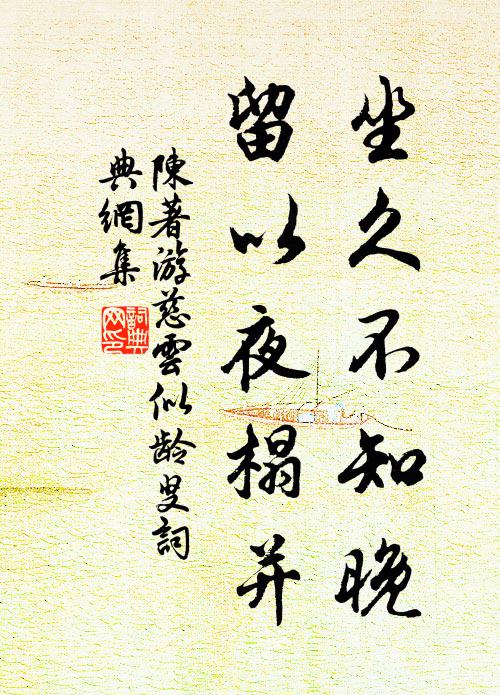 坐久不知晚
留以夜榻并
陳著游慈雲似龄叟詞
典網集
詞典网印